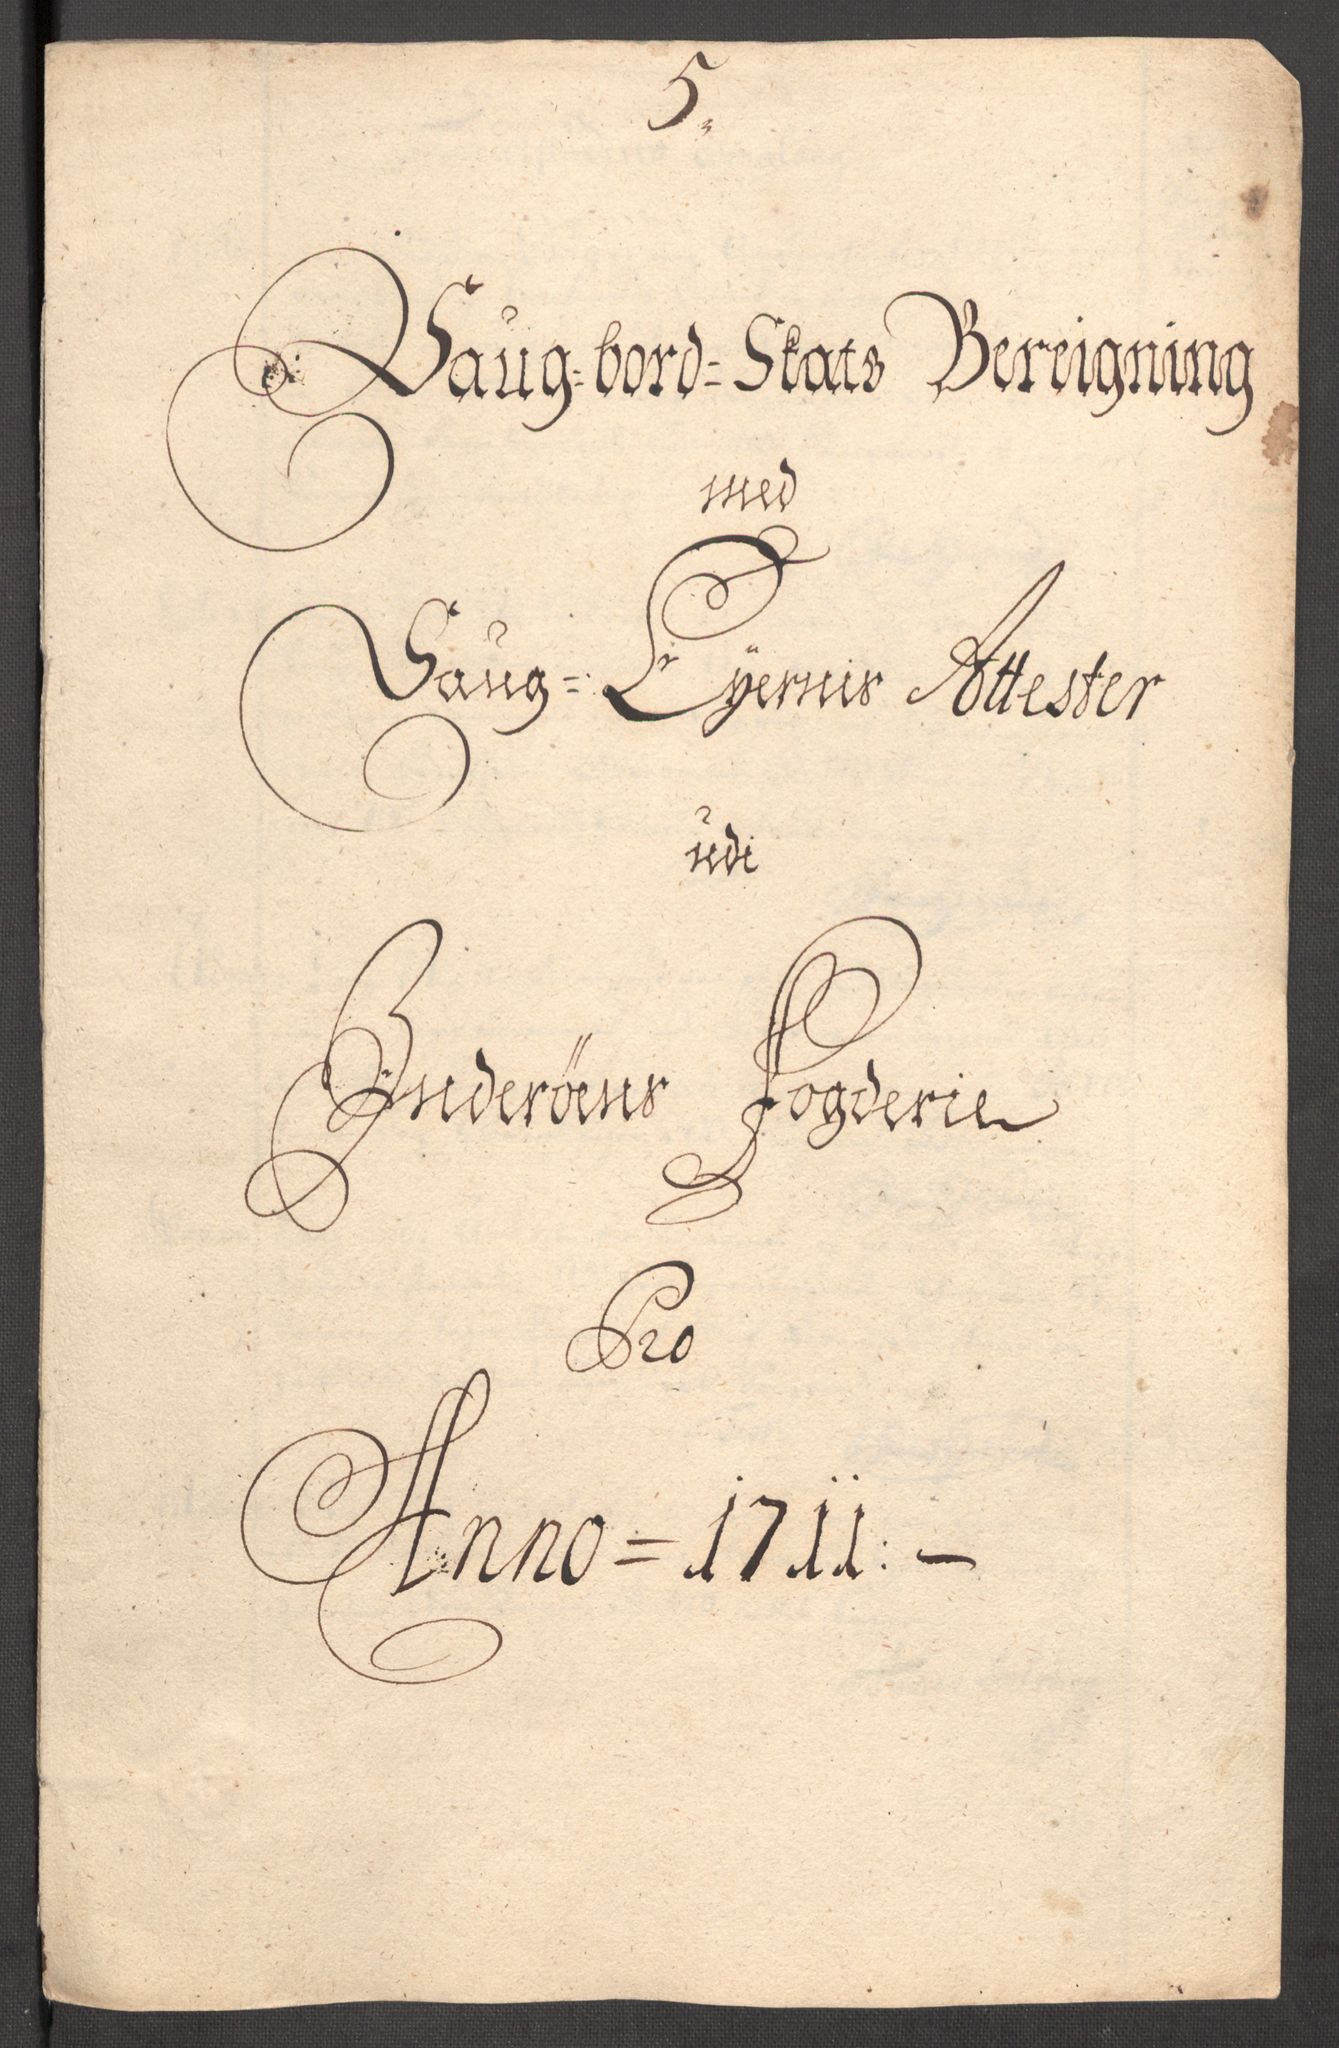 5.
Saug-bord-Skats Bereigning
med
Saug-Eÿernis Attester
udi
Inderöens Fogderie
Pro
Anno = 1711:-